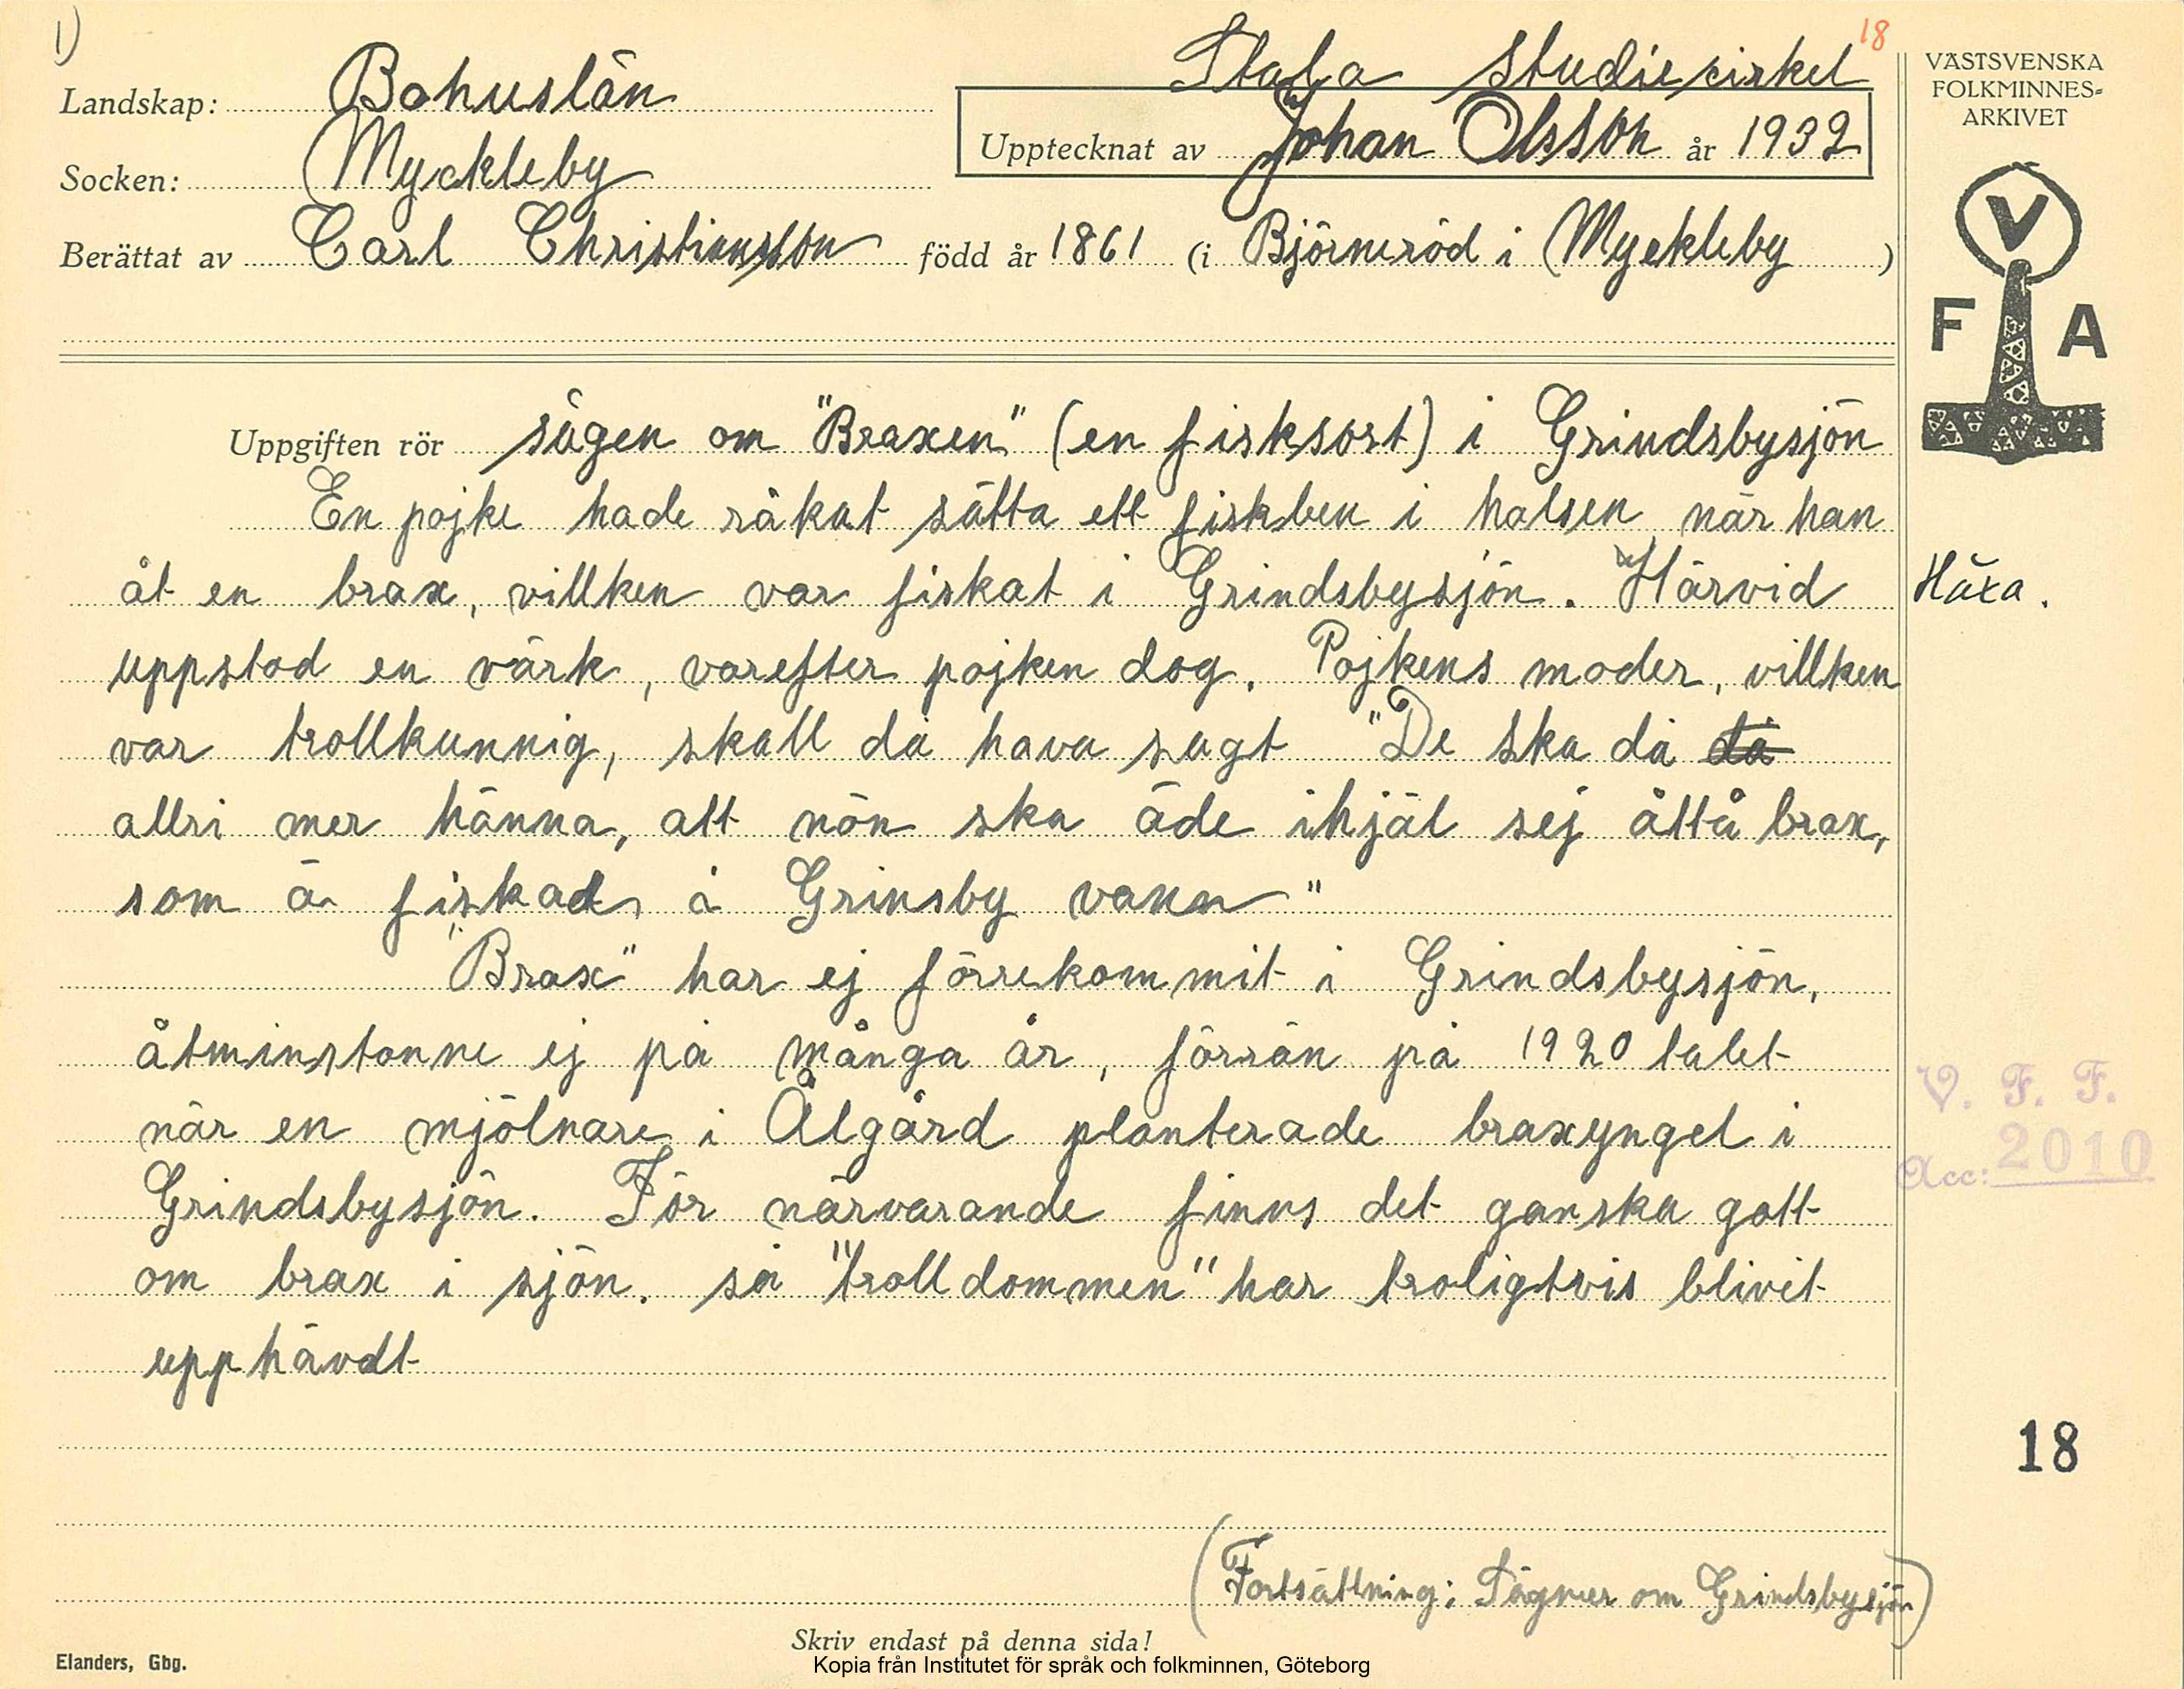 1)
18
Landskap: Bohuslän
Stala studiecirkel
Upptecknat av Johan Olsson år 1932
Socken: Myckleby
Berättat av Carl Christiansson född år 1861 (i Björneröd i Myckleby)
VÄSTSVENSKA
FOLKMINNES-
ARKIVET
V
F A
Uppgiften rör sägen om "Braxen" (en fisksort) i Grindsbysjön
En pojke hade råkat sätta ett fiskben i halsen när han
åt en brax, villken var fiskat i Grindsbysjön. Härvid
Häxa.
uppstod en värk, varefter pojken dog. Pojkens moder, villken
var trollkunnig, skall då hava sagt "De ska då då
allri mer hänna, att nön ska äde ihjäl sej åttå brax,
som ä fiskad å Grinsby vann"
"Brax" har ej förrekommit i Grindsbysjön,
åtminstonne ej på många år, förrän på 1920 talet
när en mjölnare i Ålgård planterade braxyngel i
Grindsbysjön. För närvarande finns det ganska gott
om brax i sjön. så "trolldommen" har troligtvis blivit
upphävdt
V. F. F.
Acc: 2010
18
(Fortsättning: Sägner om Grindsbysjön)
Skriv endast på denna sida!
Elanders, Gbg.
Kopia från Institutet för språk och folkminnen, Göteborg